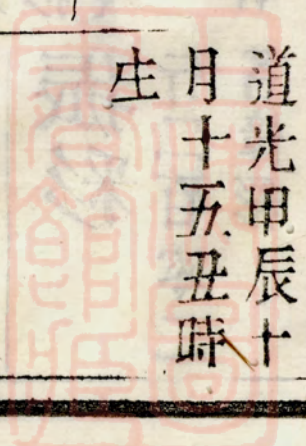 道光甲辰十
月十五丑時
生